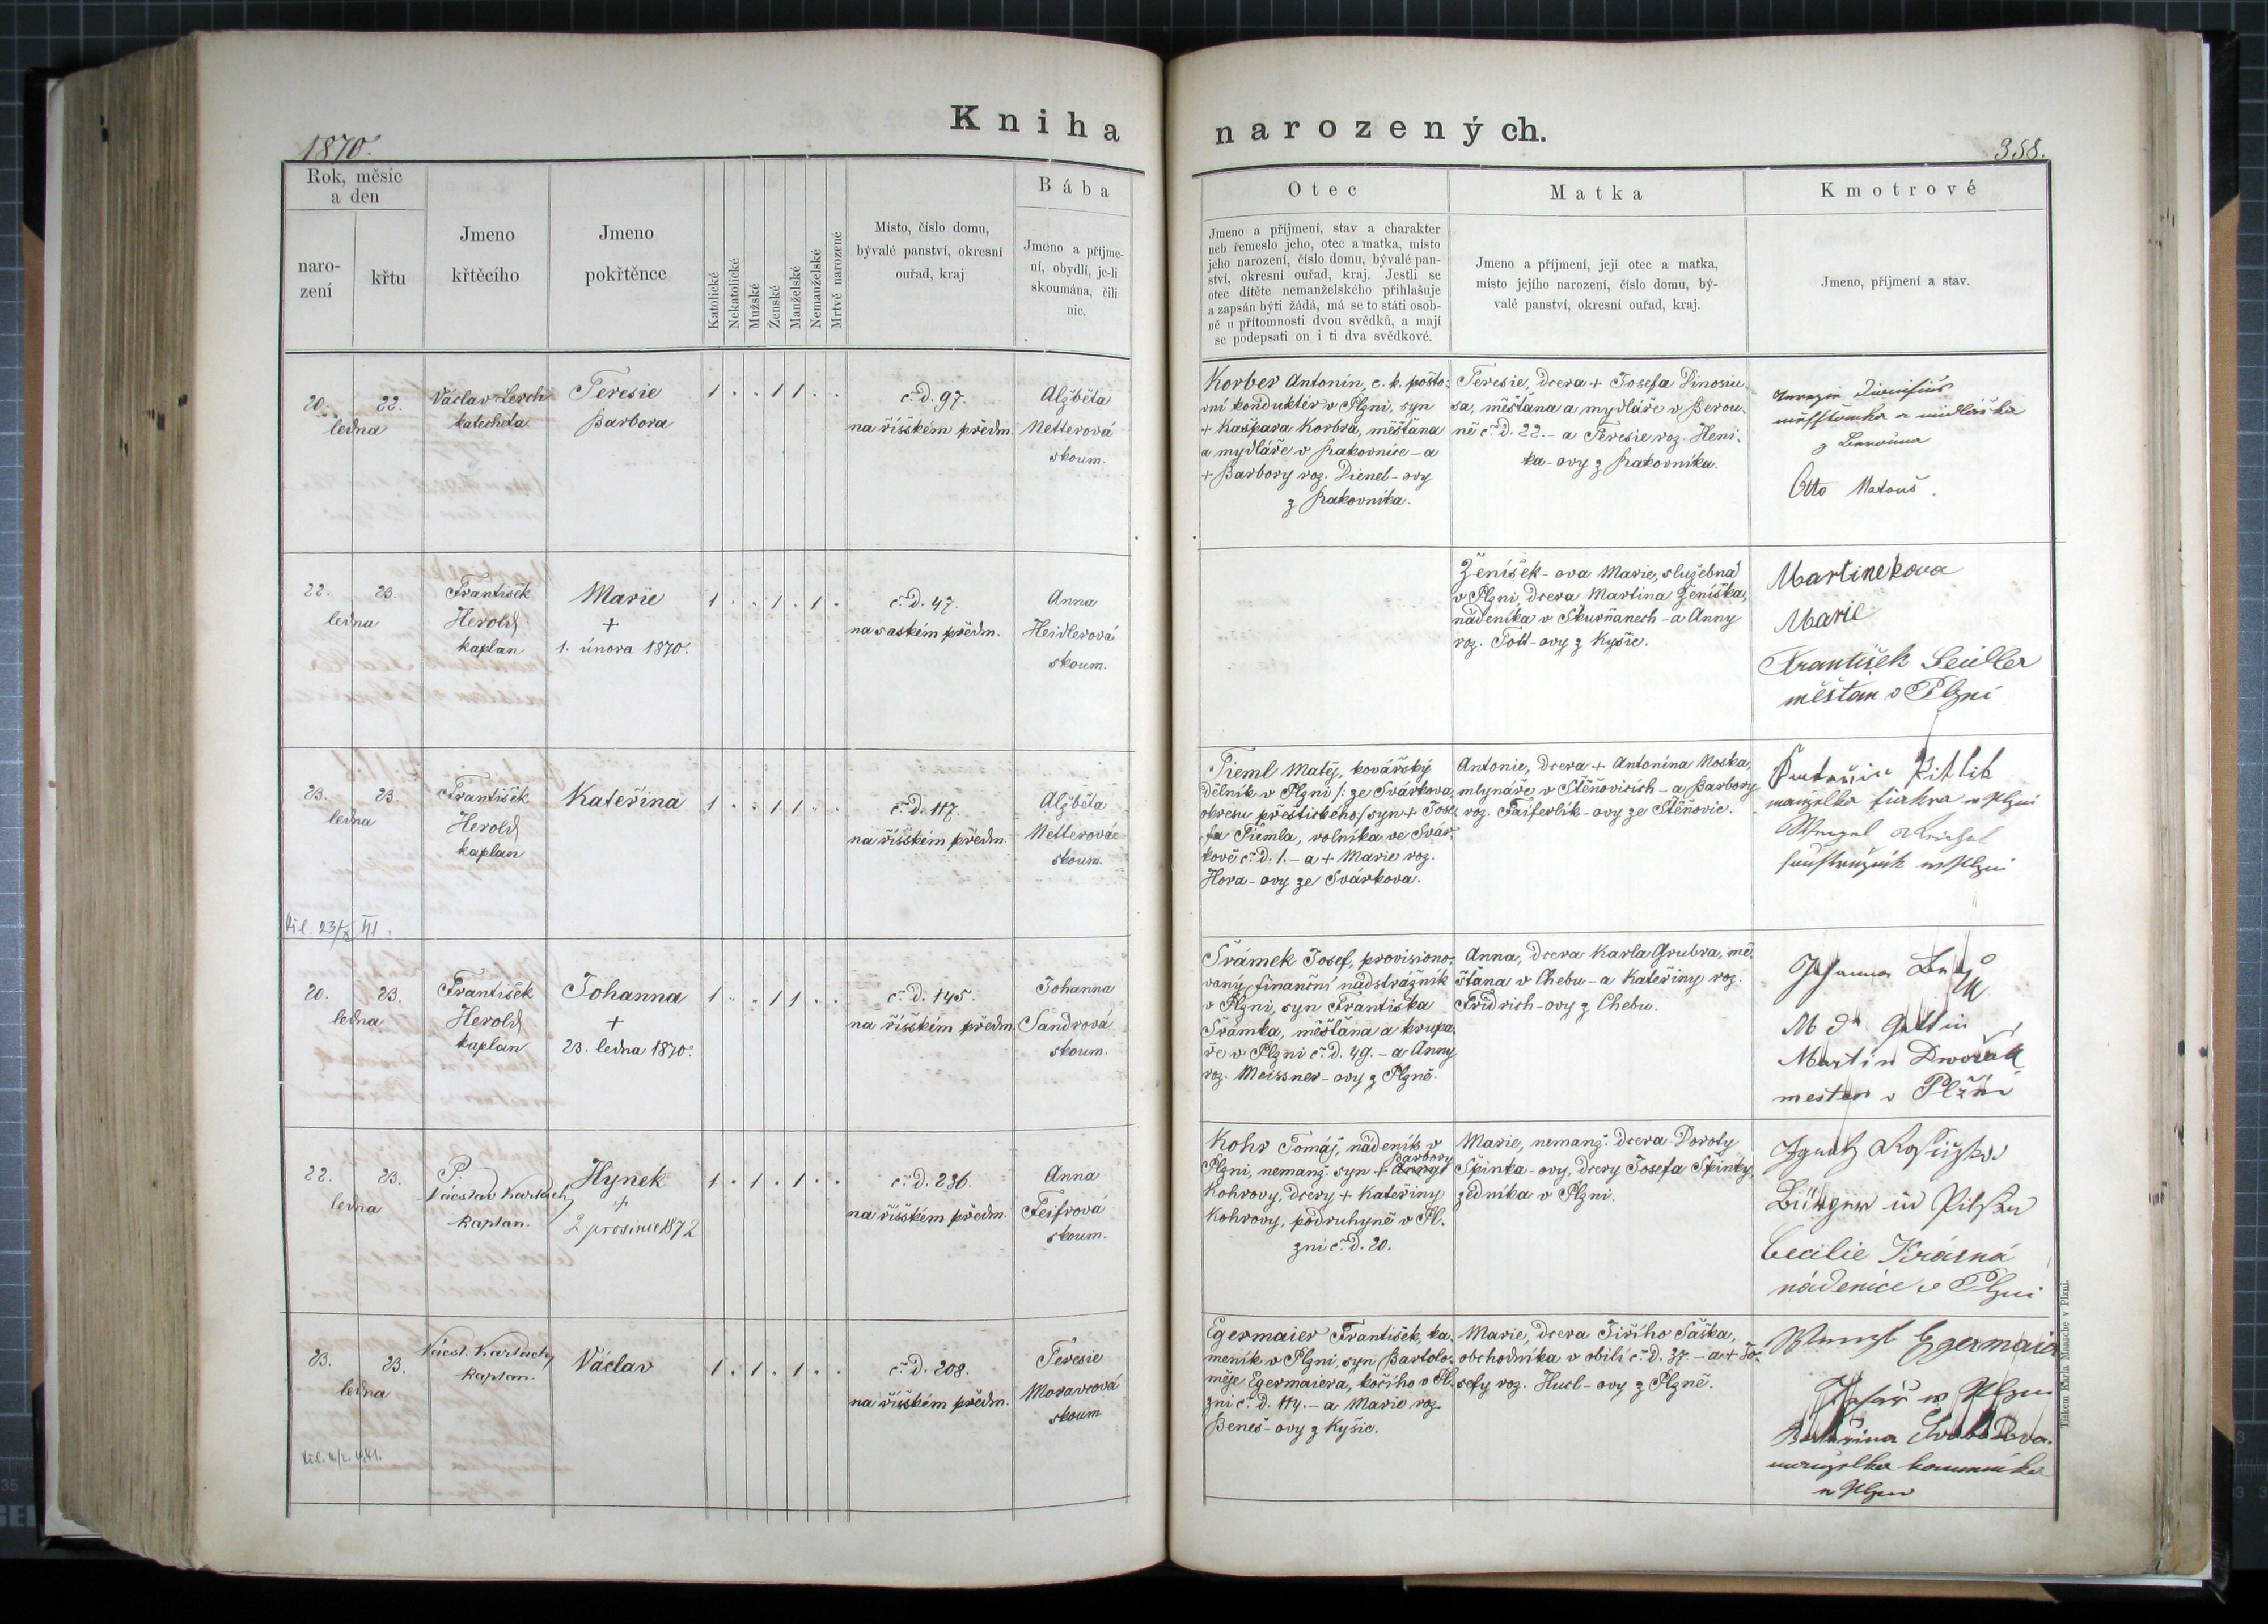 Kniha narozených.
1870.
358.
Rok, měsíc
a den
naro-
zení
křtu
Jmeno
křtěcího
Jmeno
pokřtěnce
Katolické
Nekatolické
Mužské
Ženské
Manželské
Nemanželské
Mrtvě narozené
Místo, číslo domu,
bývalé panství, okresní
ouřad, kraj
Bába
Jmeno a příjme-
ní, obydlí, je-li
skoumána, čili
nic.
Otec
Jmeno a příjmení, stav a charakter
neb řemeslo jeho, otec a matka, místo
jeho narození, číslo domu, bývalé pan-
ství, okresní ouřad, kraj. Jestli se
otec dítěte nemanželského přihlašuje
a zapsán býti žádá, má se to státi osob-
ně u přítomnosti dvou svědků, a mají
se podepsati on i ti dva svědkové.
Matka
Jmeno a příjmení, její otec a matka,
místo jejího narození, číslo domu, bý-
valé panství, okresní ouřad, kraj.
Kmotrové
Jmeno, příjmení a stav.
20. 22.
ledna
Václav Lerch
katecheta
Teresie
Barbora
1 . . 1 1 . .
č. d. 97.
na říšském předm.
Alžběta
Netterová
skoum.
Korber Antonín, c. k. pošto-
vní konduktér v Plzni, syn
+ Kašpara Korbra, měšťana
a mydláře v Rakovnice - a
+ Barbory roz. Dienel-ovy
z Rakovníka.
Teresie, dcera + Josefa Dinosiu-
sa, měšťana a mydláře v Berou-
ně č. d. 22. - a Teresie roz. Heni-
ka-ovy z Rakovníka.
Otto Matouš.
22. 23.
ledna
František
Herold
kaplan
Marie
+
1. února 1870.
1 . . 1 . 1 .
č. d. 47.
na saském předm.
Anna
Heidlerová
skoum.
Ženíšek-ova Marie, služebná
v Plzni, dcera Martina Ženíška,
nádeníka v Skurňanech - a Anny
roz. Tott-ovy z Kyšic.
Martinekova
Marie
František Seidler
měšťan v Plzni
23. 23.
ledna
František
Herold
kaplan
Kateřina
1 . . 1 1 . .
č. d. 117.
na říšském předm.
Alžběta
Netterová
skoum.
Tieml Matěj, kovářský
dělník v Plzni /: ze Svárkova
okresu přeštického :/ syn + Jose-
fa Tiemla, rolníka ve Svár-
kově č. d. 1. - a + Marie roz.
Hora-ovy ze Svárkova.
Antonie, dcera + Antonína Noska,
mlynáře v Štěňovicích - a Barbory
roz. Faiferlík-ovy ze Štěňovic.
manželka fiakra v Plzni
20. 23.
ledna
František
Herold
kaplan
Johanna
+
23. ledna 1870.
1 . . 1 1 . .
č. d. 145.
na říšském předm.
Johanna
Sandrová
skoum.
Šrámek Josef, provisiono-
vaný finanční nadstrážník
v Plzni, syn Františka
Šrámka, měšťana a krupa-
ře v Plzni č. d. 49. - a Anny
roz. Meissner-ovy z Plzně.
Anna, dcera Karla Grubra, mě-
šťana v Chebu - a Kateřiny roz.
Fridrich-ovy z Chebu.
Martin Dvořák
mestan v Plzni
22. 23.
ledna
P.
Václav Karlach,
kaplan.
Hynek
+
2 prosince 1872
1 . 1 . 1 . .
č. d. 236.
na říšském předm.
Anna
Feifrová
skoum.
Kohr Tomáš, nádeník v
Plzni, nemanž. syn + Barbory
Kohrovy, dcery + Kateřiny
Kohrovy, podruhyně v Pl-
zni č. d. 20.
Marie, nemanž. dcera Doroty
Špinka-ovy, dcery Josefa Špinky,
zedníka v Plzni.
Bürger in Pilsen
Cecilie Krásná
nádenice v Plzni
23. 23.
ledna
Václ. Karlach,
kaplan.
Václav
1 . 1 . 1 . .
č. d. 208.
na říšském předm.
Teresie
Moravcová
skoum
Egermaier František, ka-
meník v Plzni, syn Bartolo-
měje Egermaiera, kočího v Pl-
zni č. d. 114. - a Marie roz.
Beneš-ovy z Kyšic.
Marie, dcera Jiřího Šaška,
obchodníka v obilí č. d. 37. - a + Jo-
sefy roz. Hucl-ovy z Plzně.
Wenzl Egermaier
manželka kameníka
v Plzni
Tiskem Karla Maasche v Plzni.